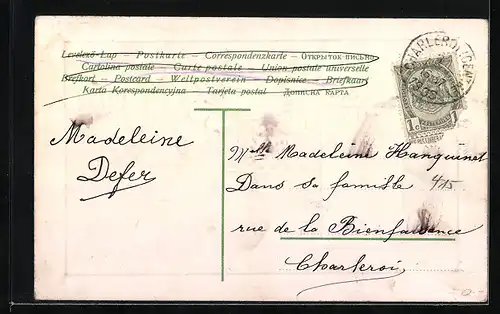 Levelező-Lap — Postkarte — Correspondenzkarte — Открытое письмо
Cartolina postale — Carte postale — Union postale universelle
Brefkort — Postcard — Weltpostverein — Dopisnice — Briefkaart
Karta Korespondencyjna — Tarjeta postal — Дописна карта
CHARLEROI
1c
Madeleine
Defer
Melle Madeleine Hanquinet
Dans sa famille 45
rue de la Bienfaisance
Charleroi